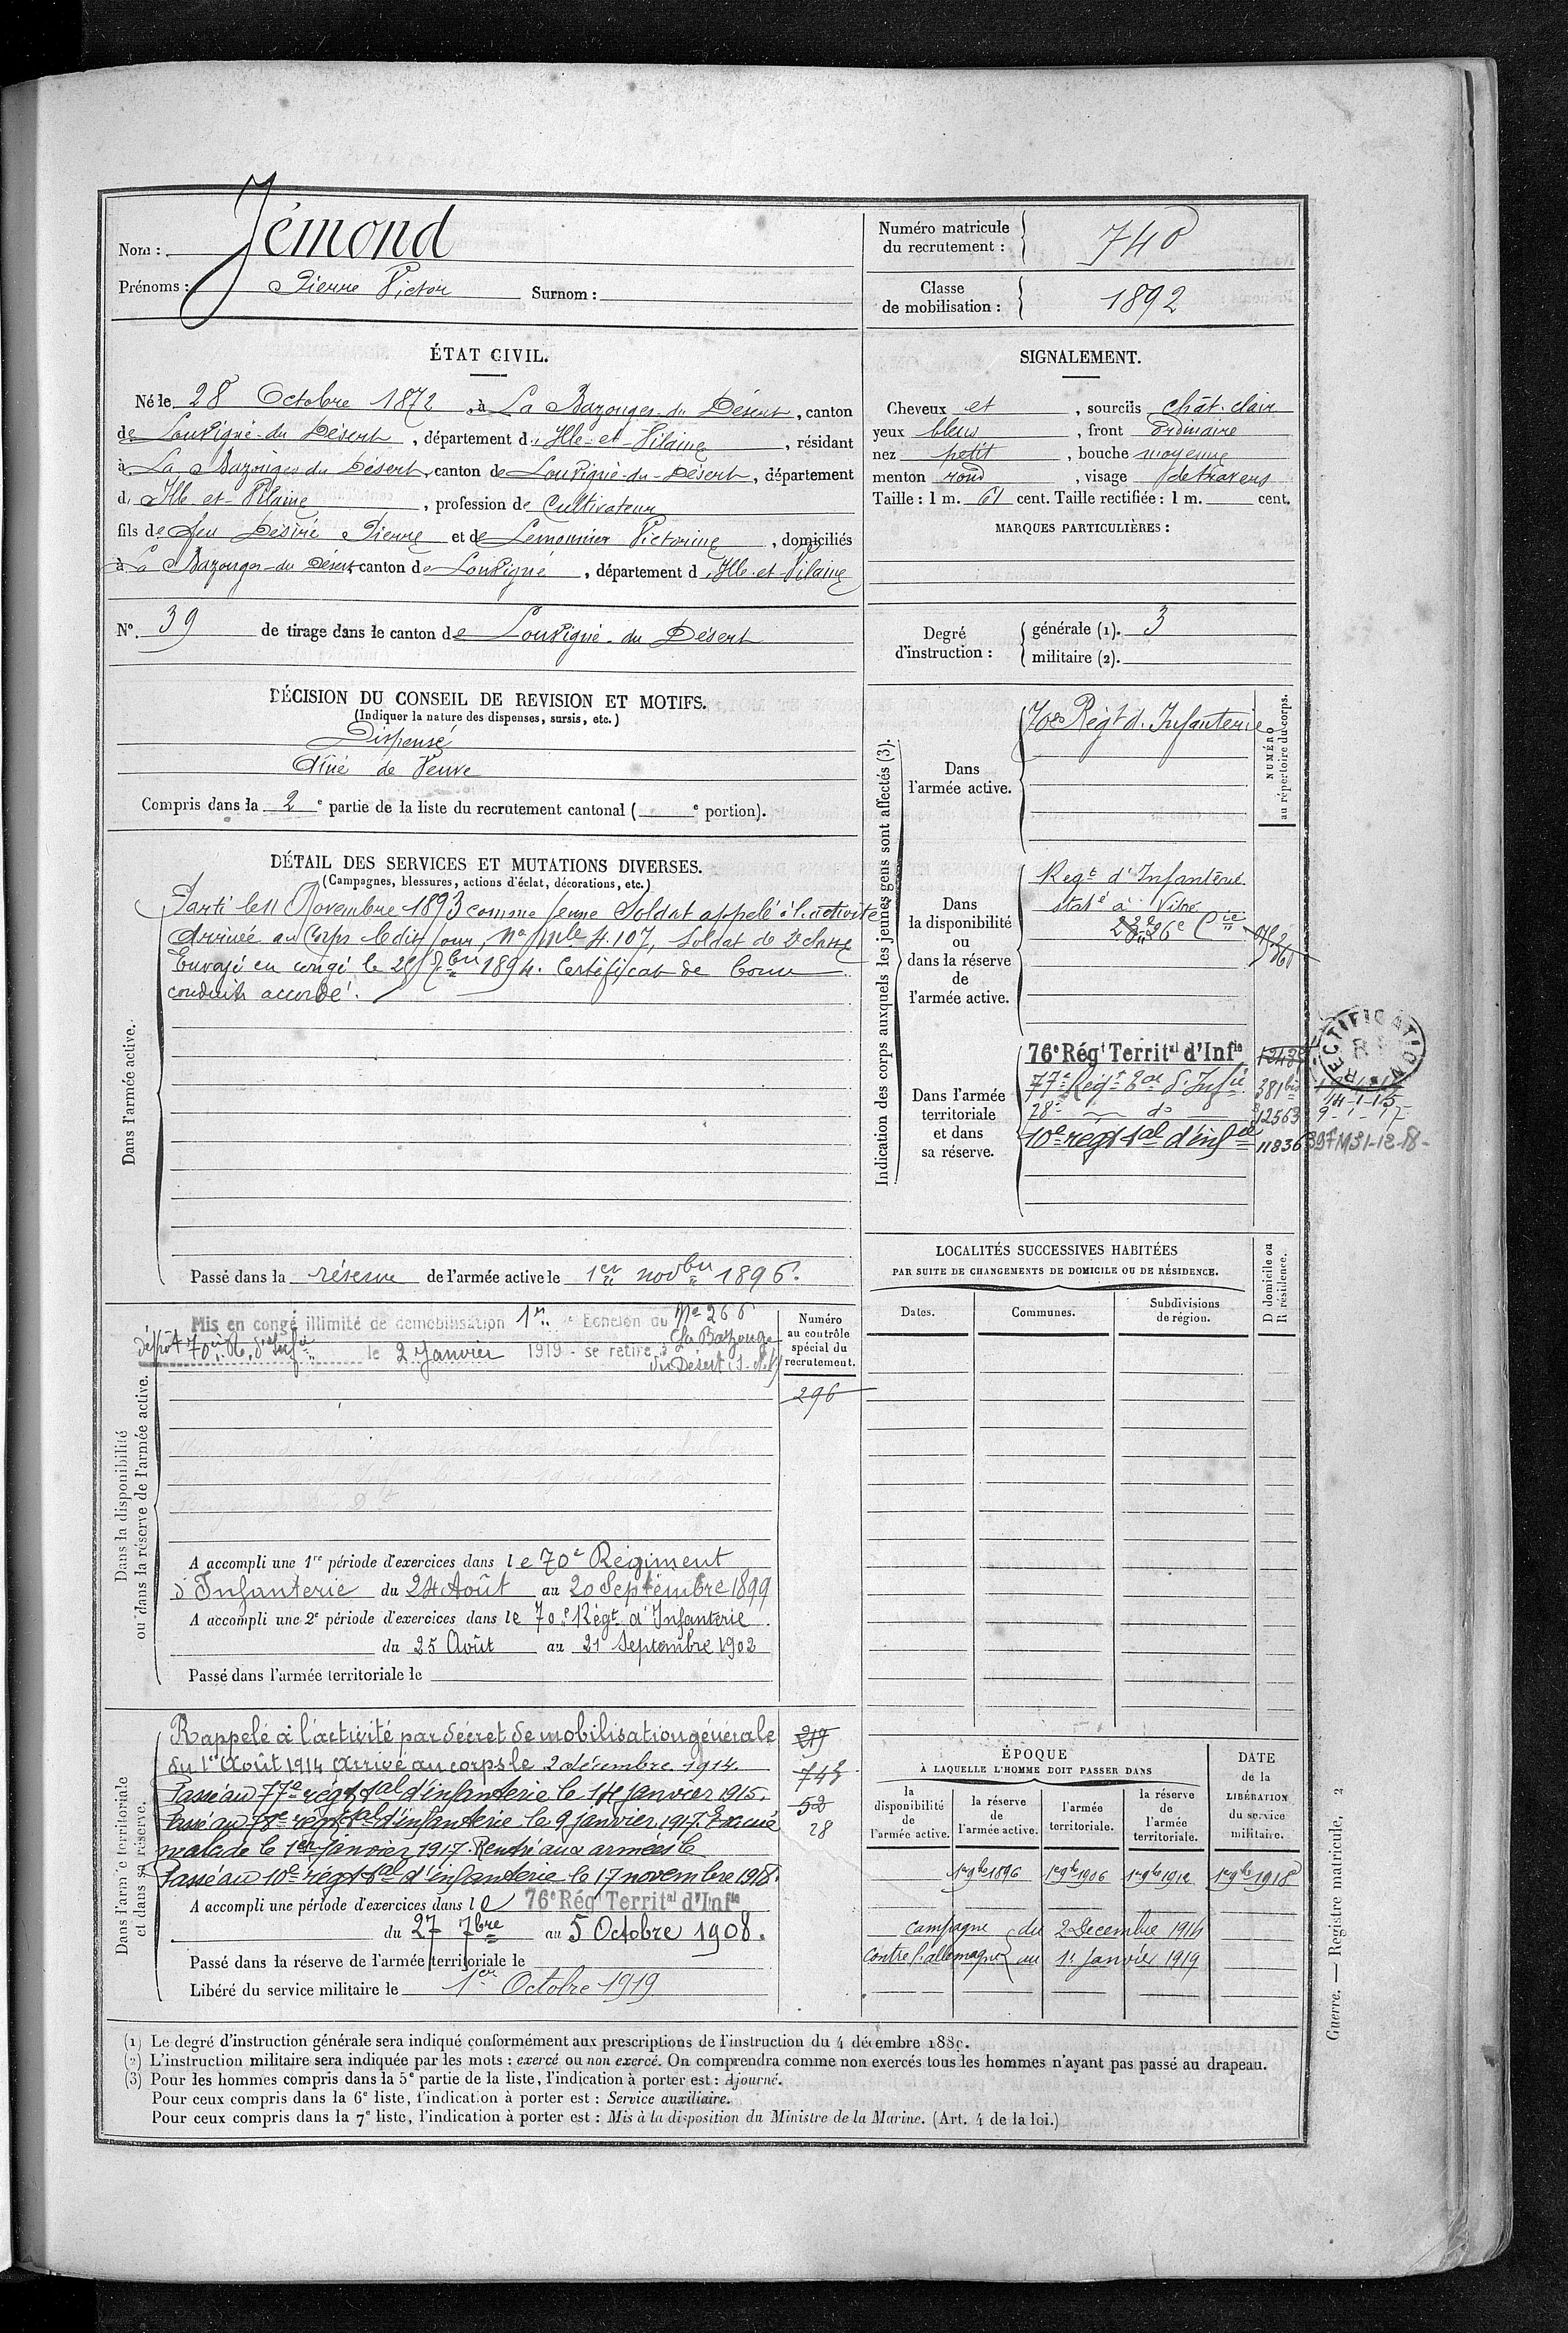 Nom : Jémond
Prénoms : Pierre Victor Surnom :
Numéro matricule du recrutement : 740
Classe de mobilisation : 1892
ÉTAT CIVIL.
Né le 28 Octobre 1872, à La Bazouges-du Désert, canton
de Louvigné-du Désert, département d'Ille-et-Vilaine, résidant
à La Bazouges du Désert, canton de Louvigné-du-Désert, département
d'Ille-et-Vilaine, profession de Cultivateur
fils de feu Désiré Pierre et de Lemonnier Victorine, domiciliés
à La Bazouges-du Désert canton de Louvigné, département d'Ille-et-Vilaine
N° 39 de tirage dans le canton de Louvigné-du Désert
SIGNALEMENT.
Cheveux et, sourcils chât. clair
yeux bleus, front ordinaire
nez petit, bouche moyenne
menton rond, visage
Taille : 1 m. 61 cent. Taille rectifiée : 1 m. cent.
MARQUES PARTICULIÈRES :
Degré d'instruction :
générale (1). 3
militaire (2).
DÉCISION DU CONSEIL DE REVISION ET MOTIFS.
(Indiquer la nature des dispenses, sursis, etc.)
Dispensé
Aîné de Veuve
Compris dans la 2e partie de la liste du recrutement cantonal ( e portion).
DÉTAIL DES SERVICES ET MUTATIONS DIVERSES.
(Campagnes, blessures, actions d'éclat, décorations, etc.)
Dans l'armée active.
Parti le 11 Novembre 1893 comme jeune Soldat appelé à l'activité
Arrivée au Corps ledit jour, No Mle 4.107, Soldat de 2e classe
Envoyé en congé le 25 7bre 1894. Certificat de bonne
conduite accordé.
Passé dans la réserve de l'armée active le 1er novbre 1896.
Indication des corps auxquels les jeunes gens sont affectés (3).
NUMÉRO au répertoire du corps.
Dans l'armée active.
70e Régt d'Infanterie
Dans la disponibilité ou dans la réserve de l'armée active.
Régt d'Infanterie
statné à Vitré
26e Cie
Dans l'armée territoriale et dans sa réserve.
76e Régt Territal d'Infie
77e Régt Tal d'Infie 381bis 14-1-15
28e do 12563 9-1-17
10e régt tal d'infie 11836 31-12-18
RECTIFICATION
Dans la disponibilité ou dans la réserve de l'armée active.
Mis en congé illimité de démobilisation 1er Echelon No 266
dépôt 70e R. d'Infie le 2 Janvier 1919 - se retire à La Bazouge
du Désert
Numéro au contrôle spécial du recrutement.
296
A accompli une 1re période d'exercices dans le 70e Régiment
d'Infanterie du 24 Août au 20 Septembre 1899
A accompli une 2e période d'exercices dans le 70e Régt d'Infanterie
du 25 Août au 21 Septembre 1902
Passé dans l'armée territoriale le
LOCALITÉS SUCCESSIVES HABITÉES
PAR SUITE DE CHANGEMENTS DE DOMICILE OU DE RÉSIDENCE.
D domicile ou R résidence.
Dates. Communes. Subdivisions de région.
Dans l'armée territoriale et dans sa réserve.
Rappelé à l'activité par décret de mobilisation générale 219
du 1er Août 1914 Arrivé au corps le 2 décembre 1914.
Passé au 77e régt tal d'infanterie le 14 janvier 1915.
Passé au 28e régt tal d'infanterie le 9 janvier 1917. Evacué 52
malade le 1er janvier 1917. Rentré aux armées le 28
Passé au 10e régt tal d'infanterie le 17 novembre 1918.
A accompli une période d'exercices dans le 76e Régt Territal d'Infie
du 27 7bre au 5 Octobre 1908.
Passé dans la réserve de l'armée territoriale le
Libéré du service militaire le 1er Octobre 1919
ÉPOQUE
À LAQUELLE L'HOMME DOIT PASSER DANS
la disponibilité de l'armée active.
la réserve de l'armée active.
l'armée territoriale.
la réserve de l'armée territoriale.
DATE de la LIBÉRATION du service militaire.
1er 9bre 1896 1er 9bre 1906 1er 9bre 1912 1er 9bre 1918
campagne du 2 Decembre 1914
contre l'allemagne au 1er Janvier 1919
(1) Le degré d'instruction générale sera indiqué conformément aux prescriptions de l'instruction du 4 décembre 1889.
(2) L'instruction militaire sera indiquée par les mots : exercé ou non exercé. On comprendra comme non exercés tous les hommes n'ayant pas passé au drapeau.
(3) Pour les hommes compris dans la 5e partie de la liste, l'indication à porter est : Ajourné.
Pour ceux compris dans la 6e liste, l'indication à porter est : Service auxiliaire.
Pour ceux compris dans la 7e liste, l'indication à porter est : Mis à la disposition du Ministre de la Marine. (Art. 4 de la loi.)
Guerre. — Registre matricule. 2